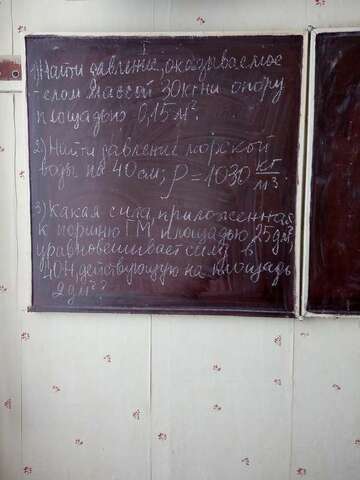 I
1) Найти давление, оказываемое
телом массой 30кг на опору
площадью 0,15м².
2) Найти давление морской
воды на 40см; ρ=1030 кг/м³.
3) Какая сила, приложенная
к поршню ГМ площадью 25дм²,
уравновешивает силу в
40Н, действующую на площадь
2дм²?